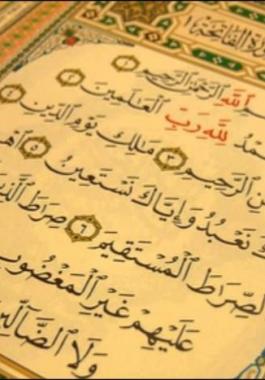 سُورَةُ الفَاتِحَةِ
ٱللَّهِ ٱلرَّحْمَٰنِ ٱلرَّحِيمِ ١
لِلَّهِ رَبِّ ٱلْعَٰلَمِينَ ٢
ٱلرَّحِيمِ ٣ مَٰلِكِ يَوْمِ ٱلدِّينِ ٤
نَعْبُدُ وَإِيَّاكَ نَسْتَعِينُ ٥
ٱلصِّرَٰطَ ٱلْمُسْتَقِيمَ ٦ صِرَٰطَ
عَلَيْهِمْ غَيْرِ ٱلْمَغْضُوبِ
وَلَا ٱلضَّآلِّينَ